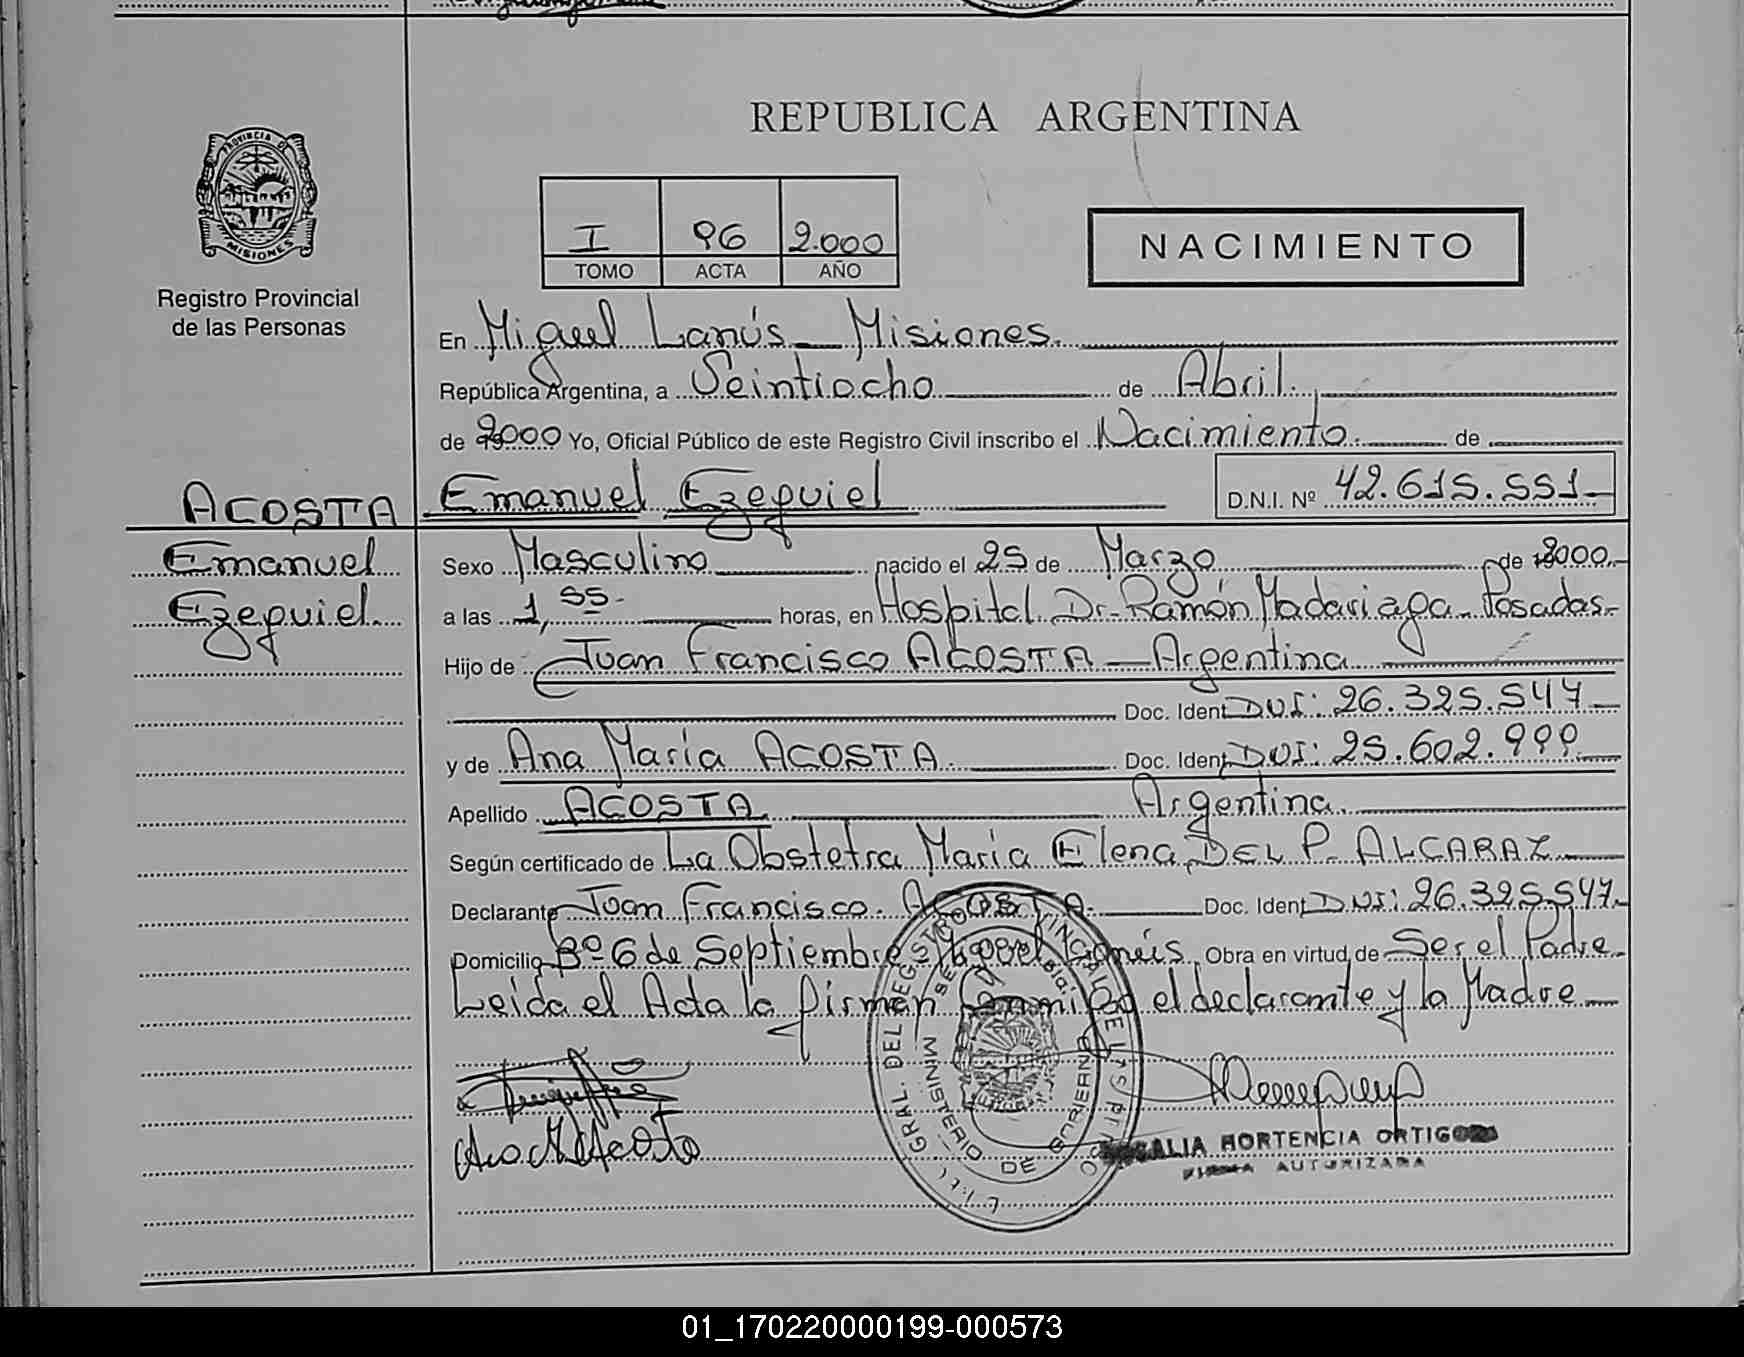 REPUBLICA ARGENTINA
PROVINCIA DE
MISIONES
Registro Provincial
de las Personas
I 96 2.000
TOMO ACTA AÑO
NACIMIENTO
En Miguel Lanús - Misiones.
República Argentina, a Veintiocho de Abril.
de 2000 Yo, Oficial Público de este Registro Civil inscribo el Nacimiento. de
ACOSTA Emanuel Ezequiel D.N.I. Nº 42.615.551
Emanuel Sexo Masculino nacido el 25 de Marzo de 2000.
Ezequiel a las 1,55 horas, en Hospital Dr. Ramón Madariaga - Posadas.
Hijo de Juan Francisco ACOSTA - Argentina
Doc. Ident DNI: 26.325.547
y de Ana María ACOSTA. Doc. Ident DNI: 25.602.999
Apellido ACOSTA Argentina.
Según certificado de La Obstetra María Elena DEL P. ALCARAZ
Declarante Juan Francisco. ACOSTA. Doc. Ident DNI: 26.325.547
Domicilio Bº 6 de Septiembre - Miguel Lanús. Obra en virtud de Ser el Padre
Leída el Acta la firman conmigo el declarante y la Madre
GRAL. DEL REGISTRO PROVINCIAL DE LAS
MINISTERIO DE GOBIERNO
Ana M Acosta
ROSALIA HORTENCIA ORTIGOZA
FIRMA AUTORIZADA
01_170220000199-000573